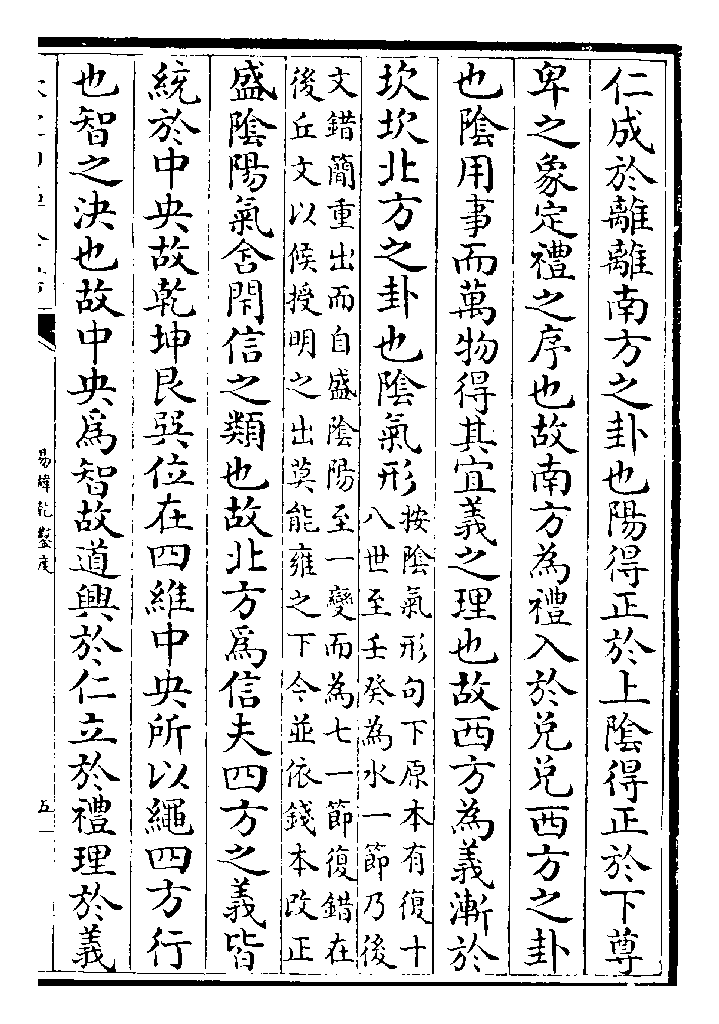 仁成於離離南方之卦也陽得正於上陰得正於下尊
卑之象定禮之序也故南方為禮入於兌兌西方之卦
也陰用事而萬物得其宜義之理也故西方為義漸於
坎坎北方之卦也陰氣形
按陰氣形句下原本有復十
八世至壬癸為水一節乃後
文錯簡重出而自盛陰陽至一變而為七一節復錯在
後丘文以候授明之出莫能雍之下今並依錢本改正
盛陰陽氣含閉信之類也故北方爲信夫四方之義皆
統於中央故乾坤艮巽位在四維中央所以繩四方行
也智之決也故中央爲智故道興於仁立於禮理於義
易緯乾鑿度
五